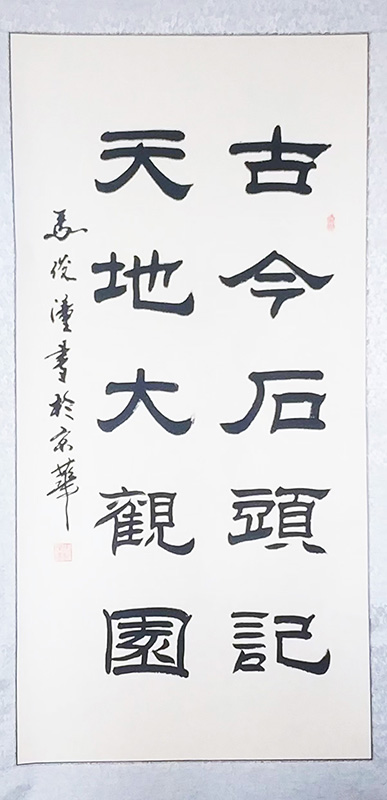 古今石頭記
天地大觀園
馬悦潼書於京華